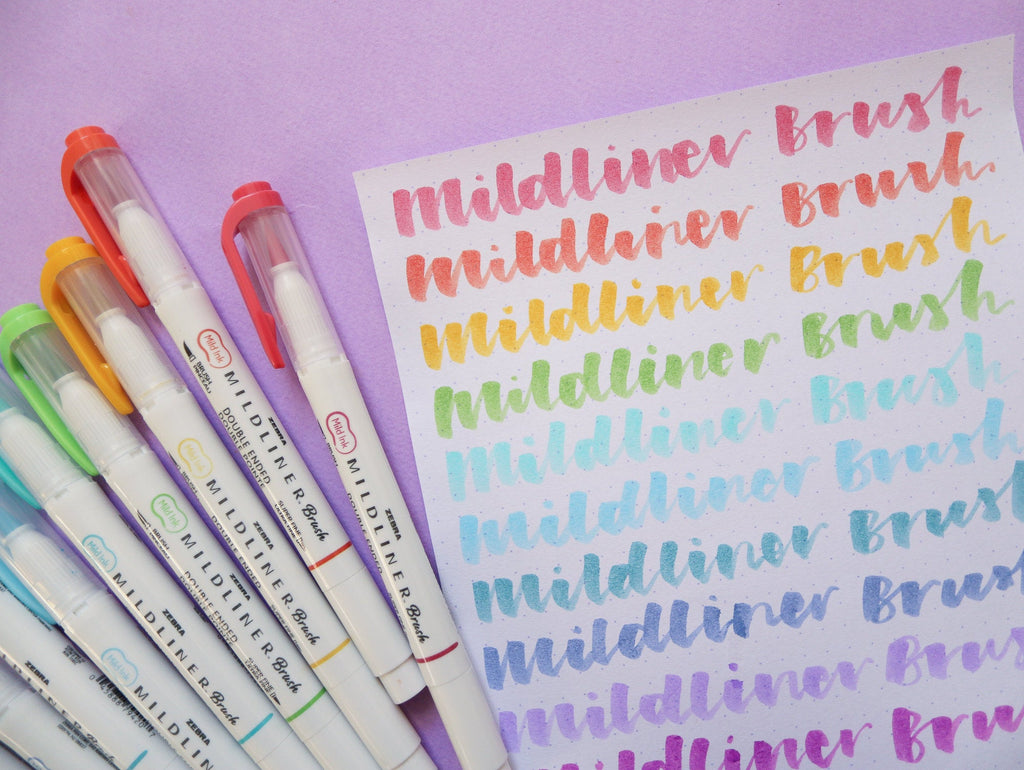 Mildliner Brush
Mildliner Brush
Mildliner Brush
Mildliner Brush
Mildliner Brush
Mildliner Brush
Mildliner Brush
Mildliner Brush
Mildliner Brus
Mildliner Bru
Mild Ink
ZEBRA
MILDLINER. Brush
DOUBLE ENDED
Mild Ink
ZEBRA
MILDLINER. Brush
DOUBLE ENDED
DOUBLE POINTE
SUPER FINE
Mild Ink
ZEBRA
MILDLINER. Brush
DOUBLE ENDED
Mild Ink
ZEBRA
MILDLINER. Brush
DOUBLE ENDED
SUPER FINE
Mild Ink
ZEBRA
MILDLINER. Brush
Mild Ink
ZEBRA
MILDLIN
ZEBRA